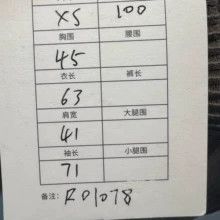 XS 100
胸围 腰围
45
衣长 裤长
63
肩宽 大腿围
41
袖长 小腿围
71
备注: R01078